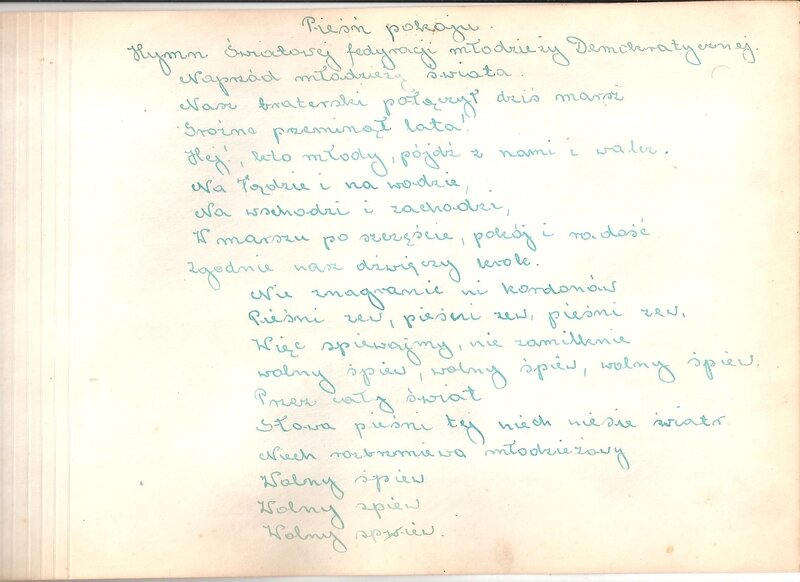 Pieśń pokoju.
Hymn Światowej federacji młodzieży Demokratycznej.
Naprzód młodzieży świata.
Nasz braterski połączył dziś marsz
Groźne przeminął lata!
Hej!, kto młody, pójdź z nami i walcz.
Na lądzie i na wodzie,
Na wschodzi i zachodzi,
W marszu po szczęście, pokój i radość
Zgodnie nasz dźwięczy krok.
Nie zna granic ni kordonów
Pieśni zew, pieśni zew, pieśni zew.
Więc spiewajmy, nie zamilknie
wolny śpiew, wolny śpiew, wolny śpiew.
Przez cały świat
Słowa pieśni tej niech niesie świat
Niech rozbrzmiewa młodzieżowy
Wolny śpiew
Wolny spiew
Wolny spiew.